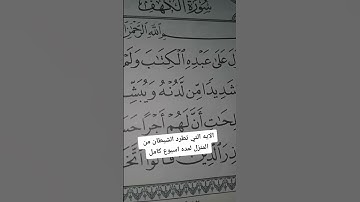 سُورَةُ الْكَهْفِ
بِسْمِ اللَّهِ الرَّحْمَٰنِ
لَ عَلَىٰ عَبْدِهِ الْكِتَابَ وَلَمْ
شَدِيدًا مِّن لَّدُنْهُ وَيُبَشِّ
لِحَاتِ أَنَّ لَهُمْ أَجْرًا حَسَ
الايه التي تطرد الشيطان من
المنزل لمده اسبوع كامل
ذِرَ الَّذِينَ قَالُوا اتَّخَ